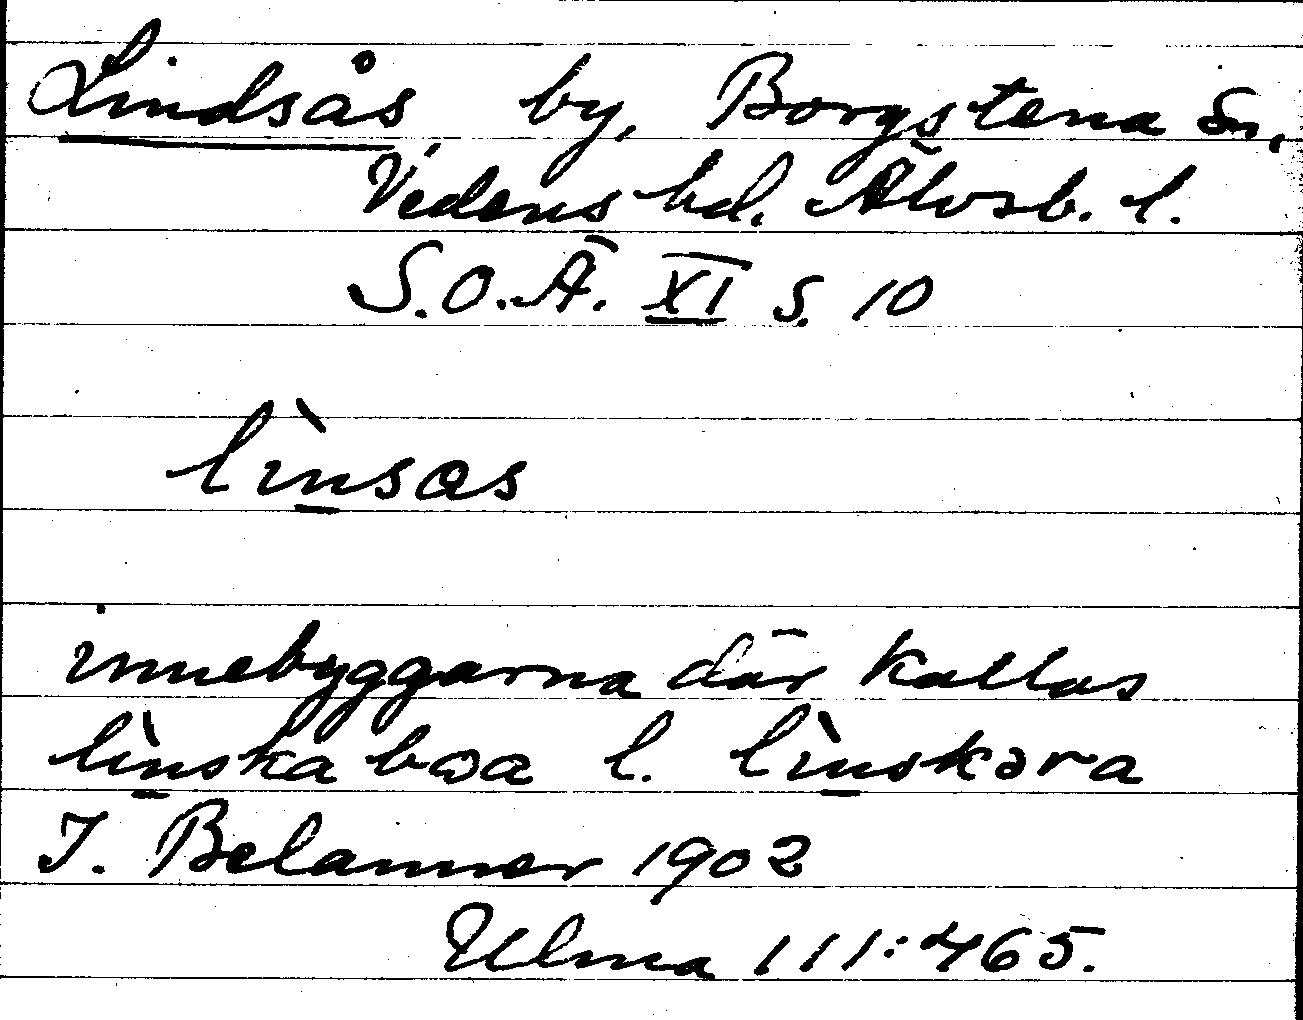 Lindsås by, Borgstena Sn,
Vedens hd. Älvsb. l.
S.O.Ä. XI S. 10
lìnsas
innebyggarna där kallas
lìnska bɷa l. lìnskəra
J. Belanner 1902
Ulma 111:465.